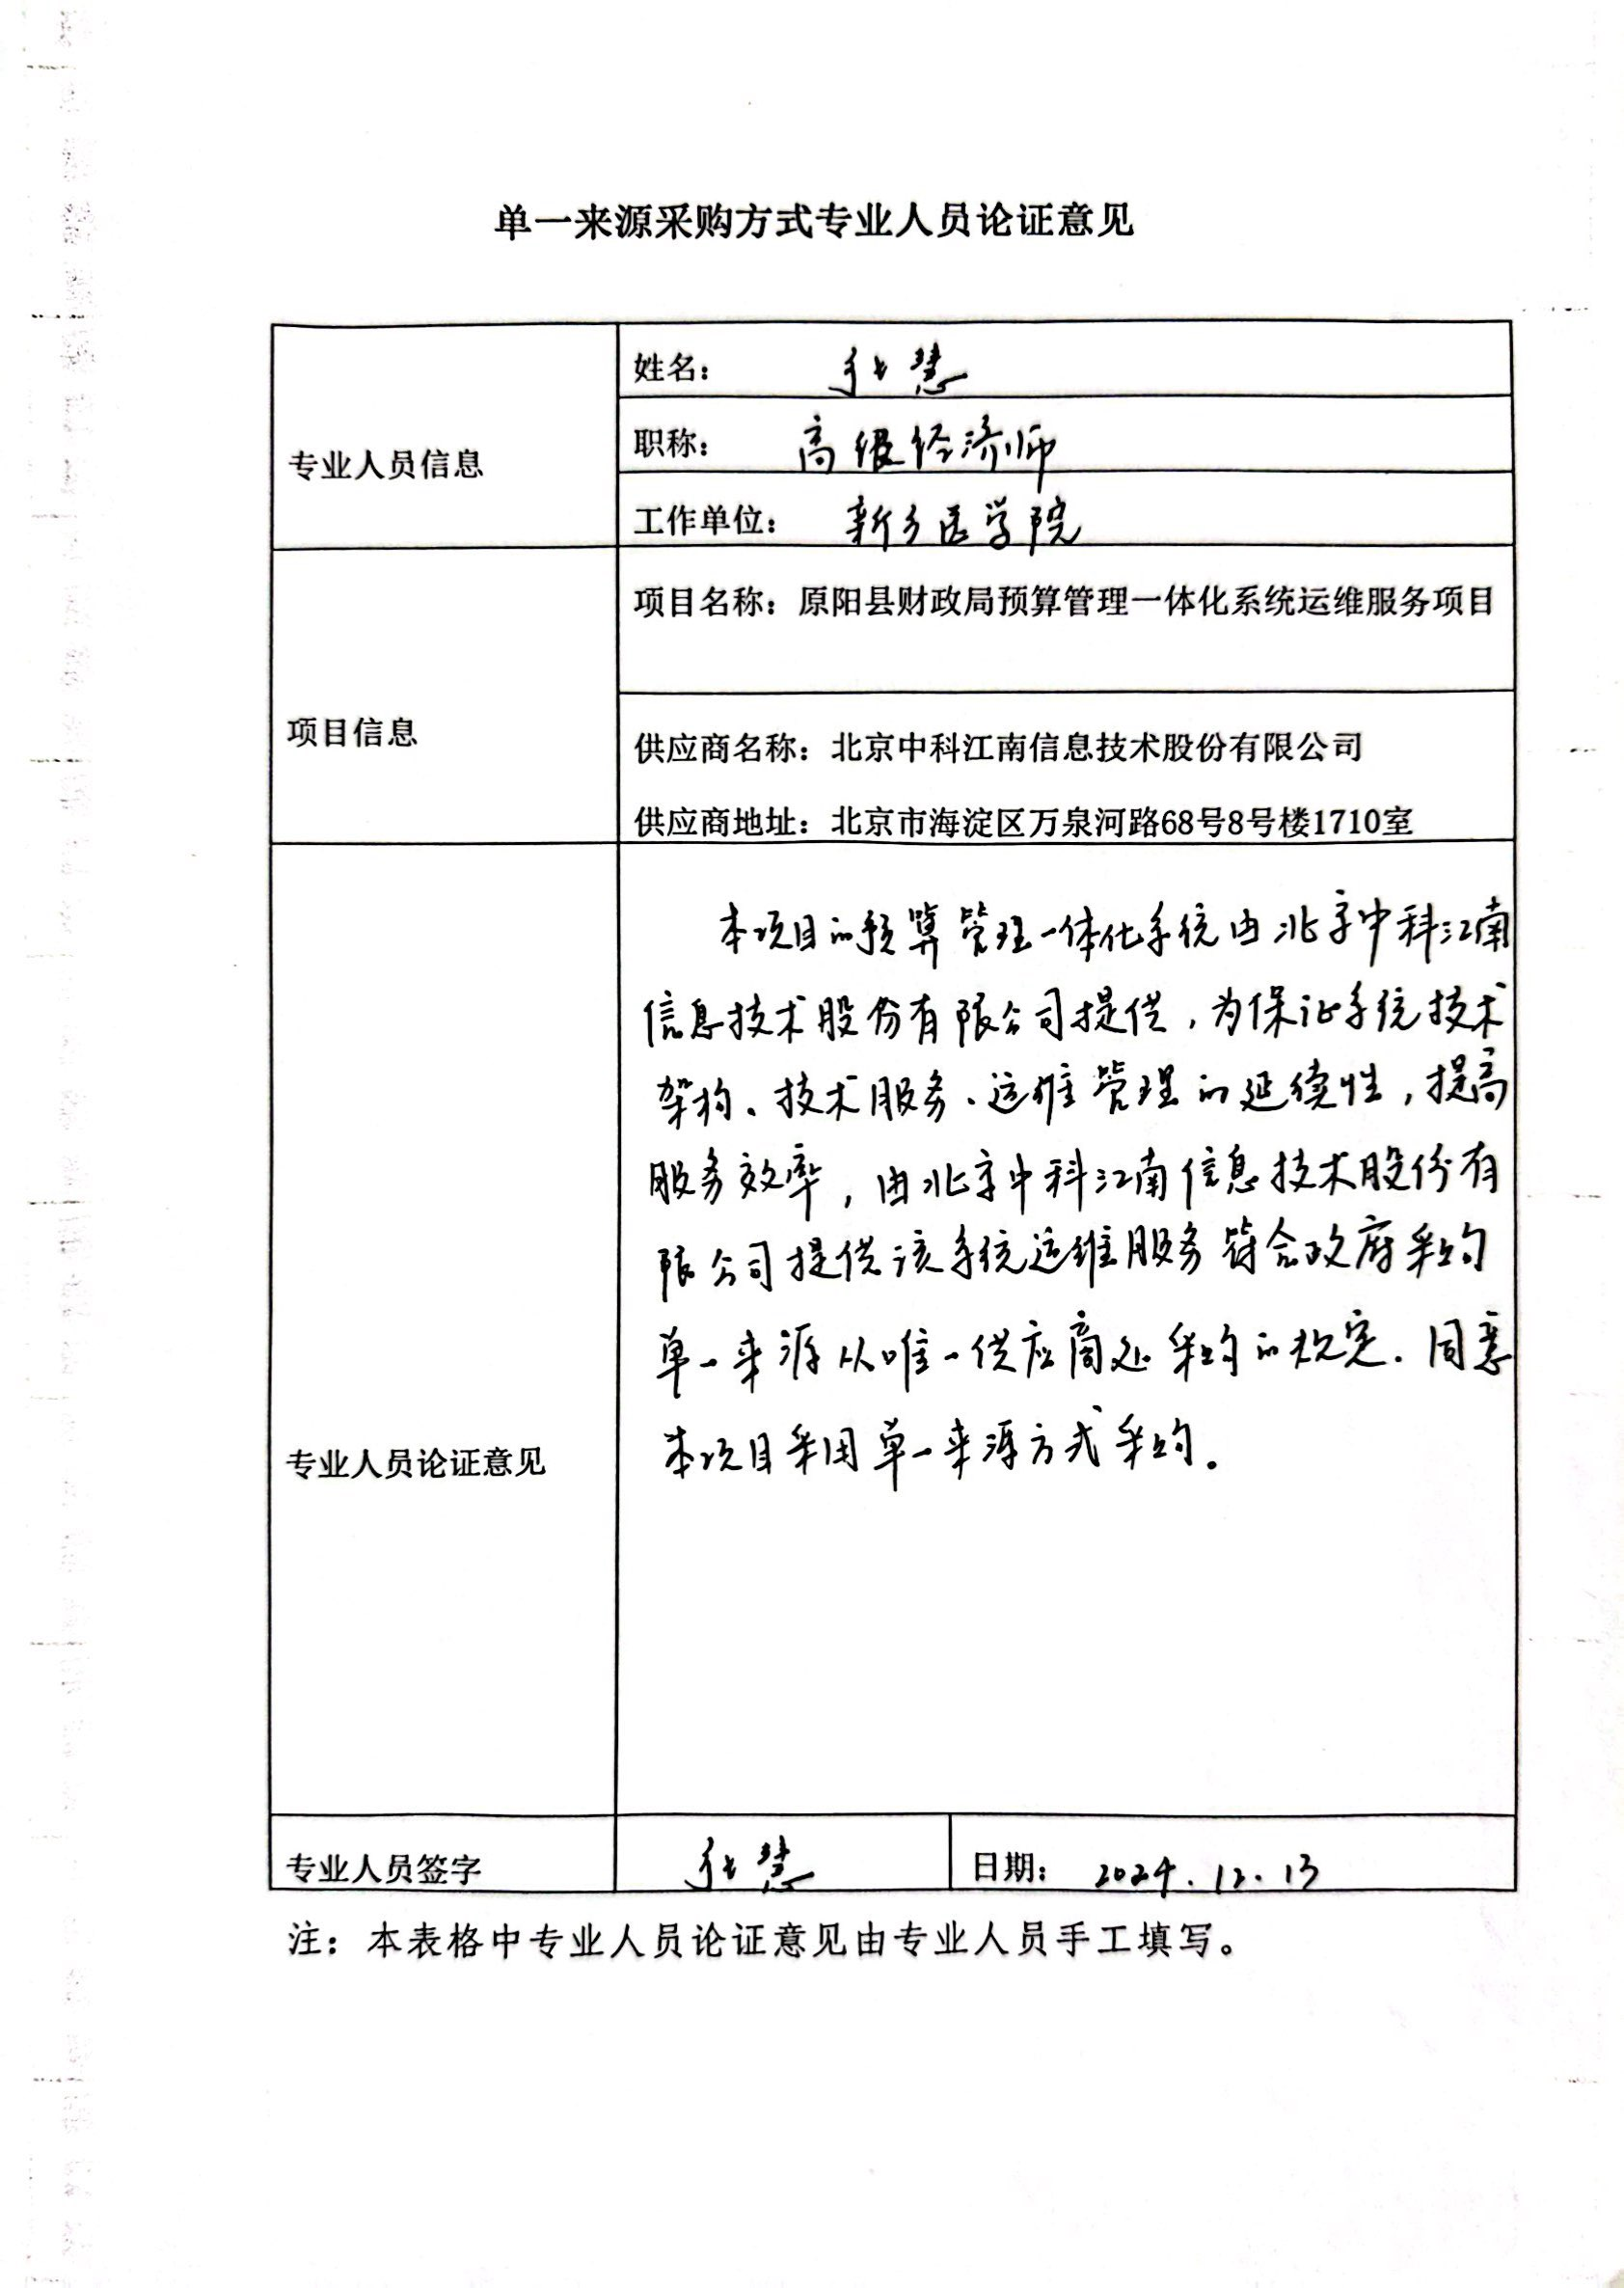 单一来源采购方式专业人员论证意见
专业人员信息
姓名： 张慧
职称： 高级经济师
工作单位： 新乡医学院
项目信息
项目名称：原阳县财政局预算管理一体化系统运维服务项目
供应商名称：北京中科江南信息技术股份有限公司
供应商地址：北京市海淀区万泉河路68号8号楼1710室
专业人员论证意见
本项目的预算管理一体化系统由北京中科江南
信息技术股份有限公司提供，为保证系统技术
架构、技术服务、运维管理的延续性，提高
服务效率，由北京中科江南信息技术股份有
限公司提供该系统运维服务符合政府采购
单一来源从唯一供应商处采购的规定．同意
本项目采用单一来源方式采购。
专业人员签字 张慧 日期： 2024.12.13
注：本表格中专业人员论证意见由专业人员手工填写。